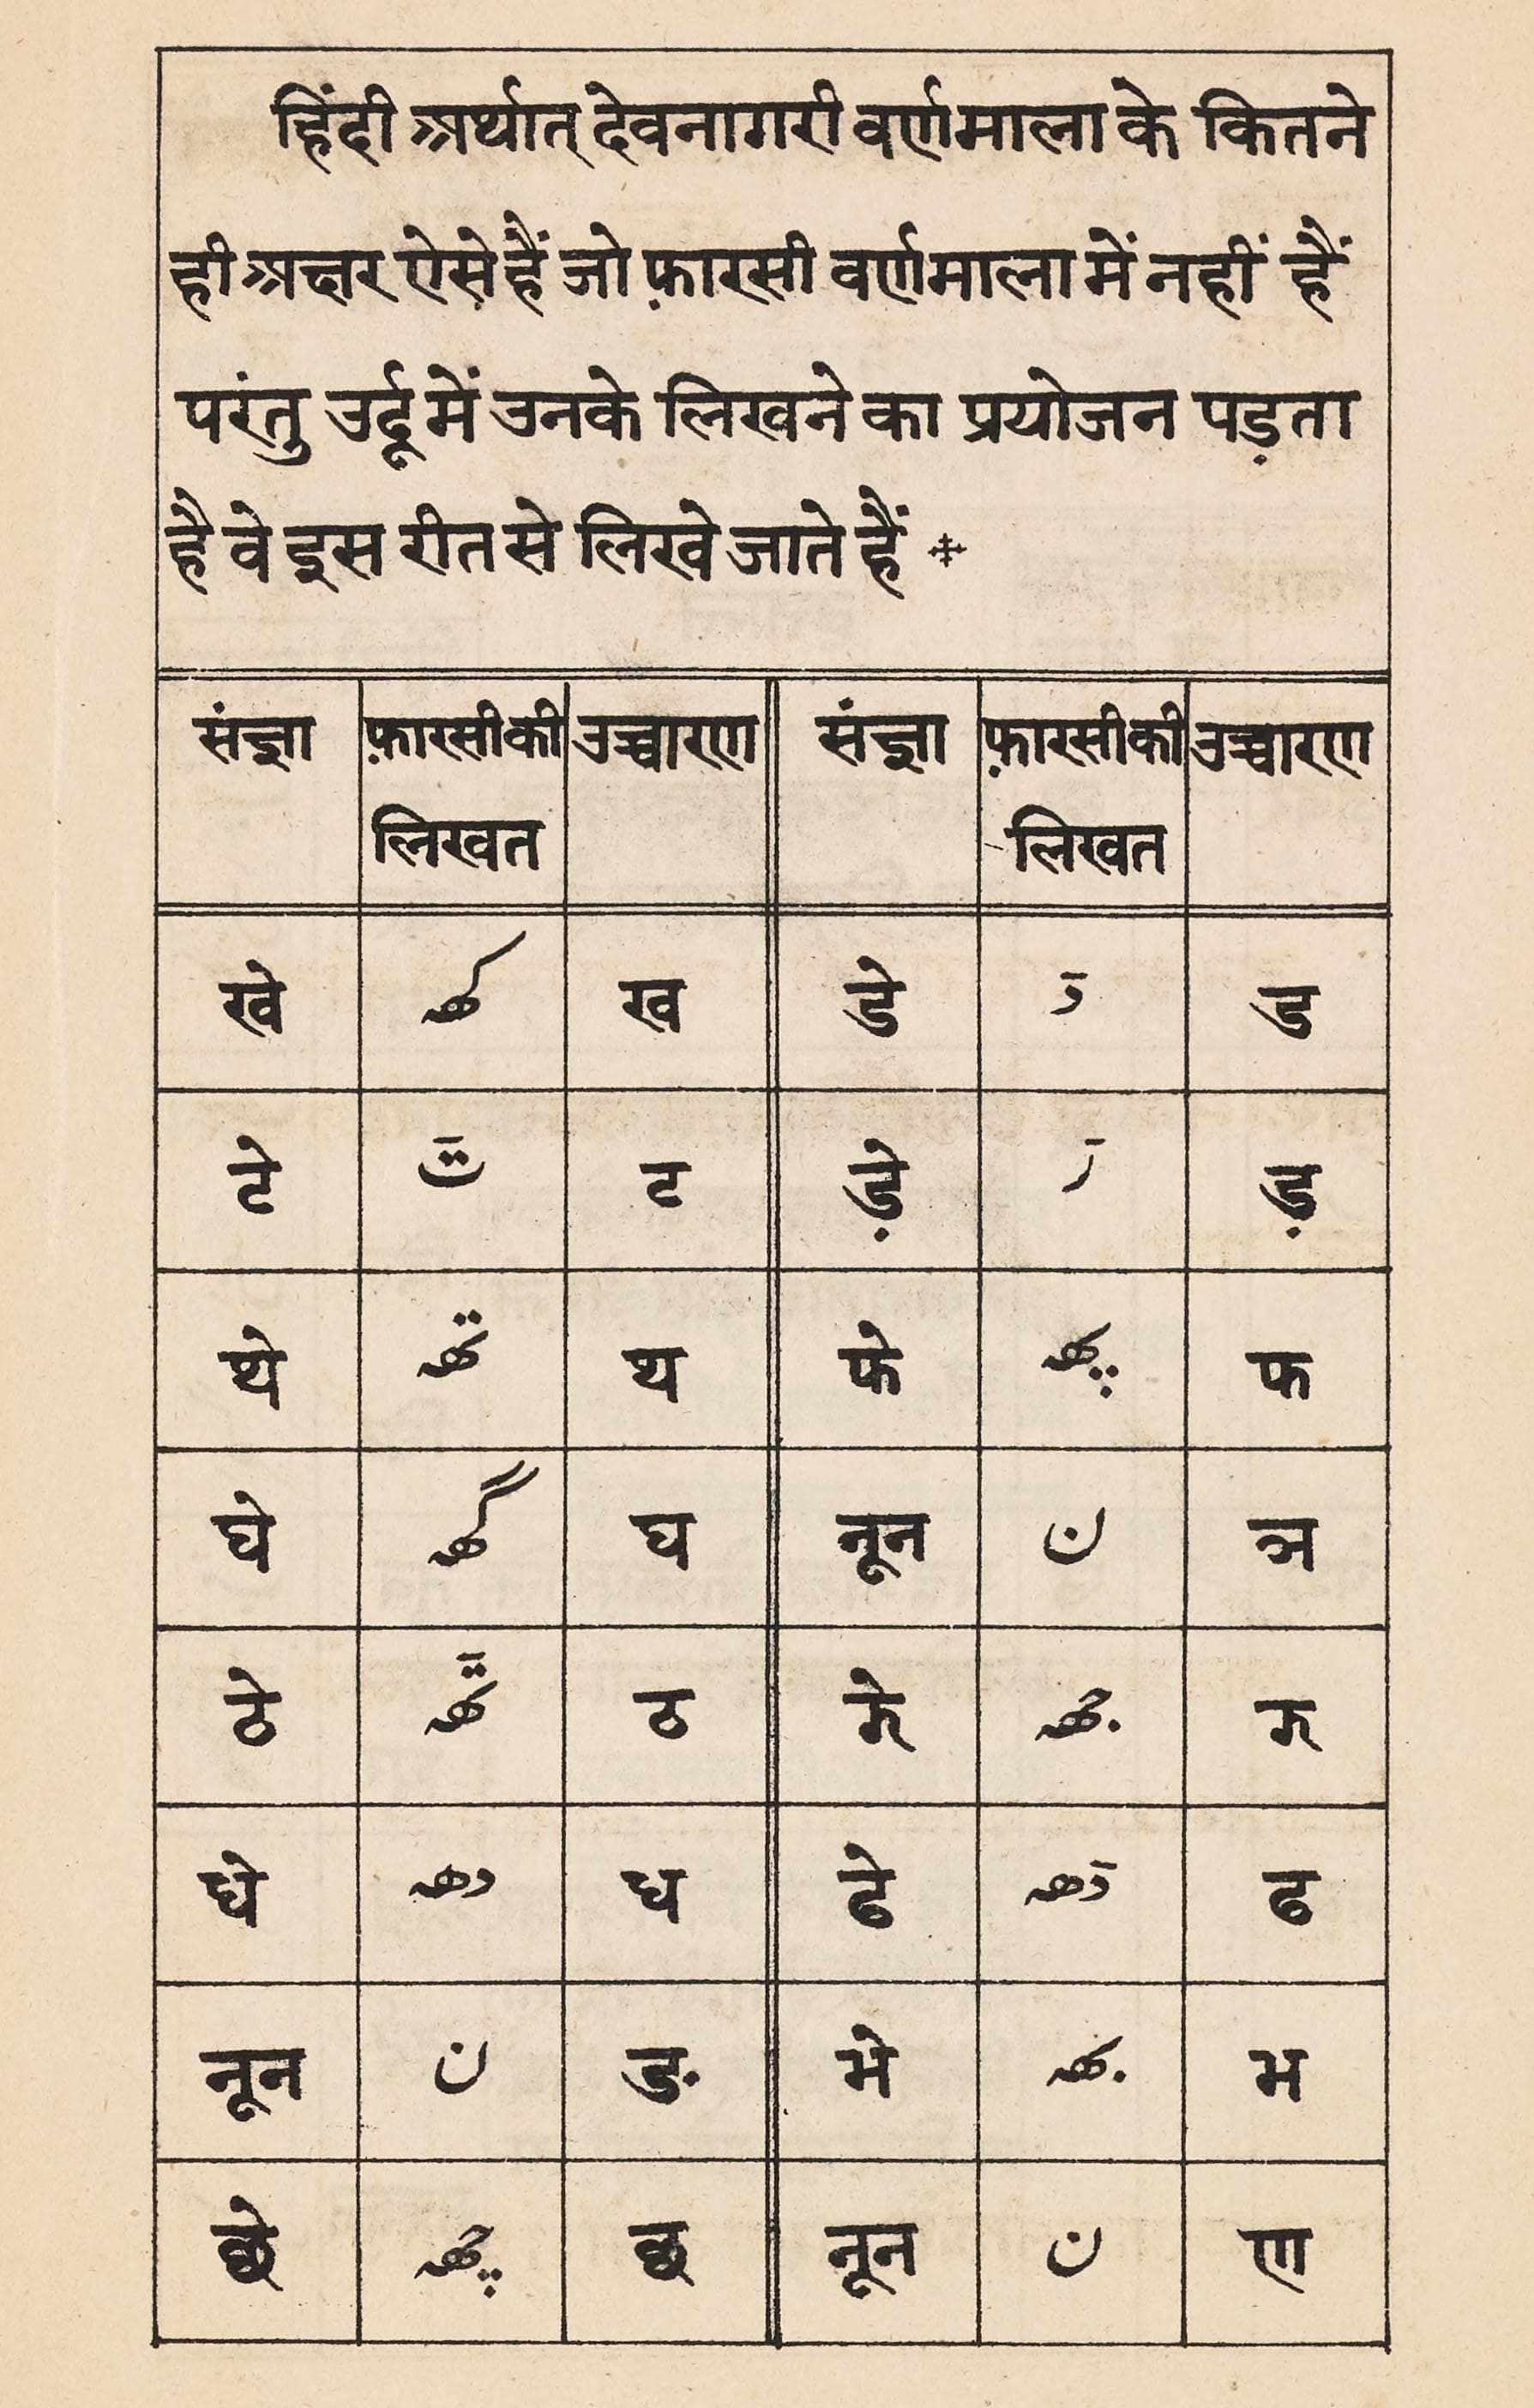 हिंदी अर्थात् देवनागरी वर्णमाला के कितने
ही अक्षर ऐसे हैं जो फ़ारसी वर्णमाला में नहीं हैं
परंतु उर्दू में उनके लिखने का प्रयोजन पड़ता
है वे इस रीत से लिखे जाते हैं
संज्ञा फ़ारसीकी उच्चारण संज्ञा फ़ारसीकी उच्चारण
लिखत लिखत
खे کھ ख डे ڈ ड
टे ٹ ट ड़े ڑ ड़
थे تھ थ फे پھ फ
घे گھ घ नून ن ञ
ठे ٹھ ठ झे جھ झ
धे دھ ध ढे ڈھ ढ
नून ن ङ भे بھ भ
छे چھ छ नून ن ण